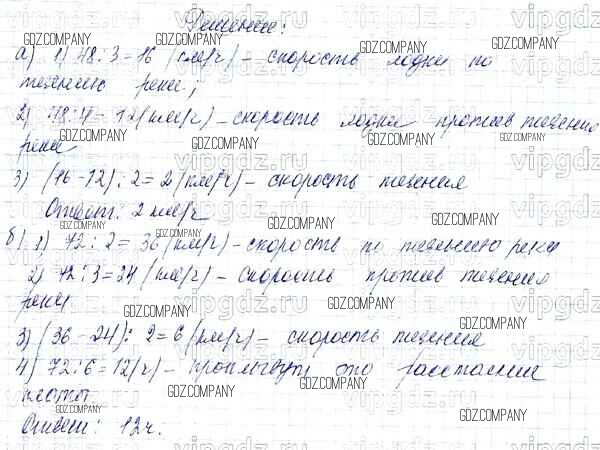 Решение:
а) 1) 48 : 3 = 16 (км/ч) – скорость лодки по
течению реки;
2) 48 : 4 = 12 (км/ч) – скорость лодки против течению
реки
3) (16 - 12) : 2 = 2 (км/ч) – скорость течения
Ответ: 2 км/ч
б) 1) 72 : 2 = 36 (км/ч) – скорость по течению реки
2) 72 : 3 = 24 (км/ч) – скорость против течения
реки
3) (36 - 24) : 2 = 6 (км/ч) – скорость течения
4) 72 : 6 = 12 (ч) – проплывут это расстояние
плоты
Ответ: 12 ч.
GDZ.COMPANY
vipgdz.ru